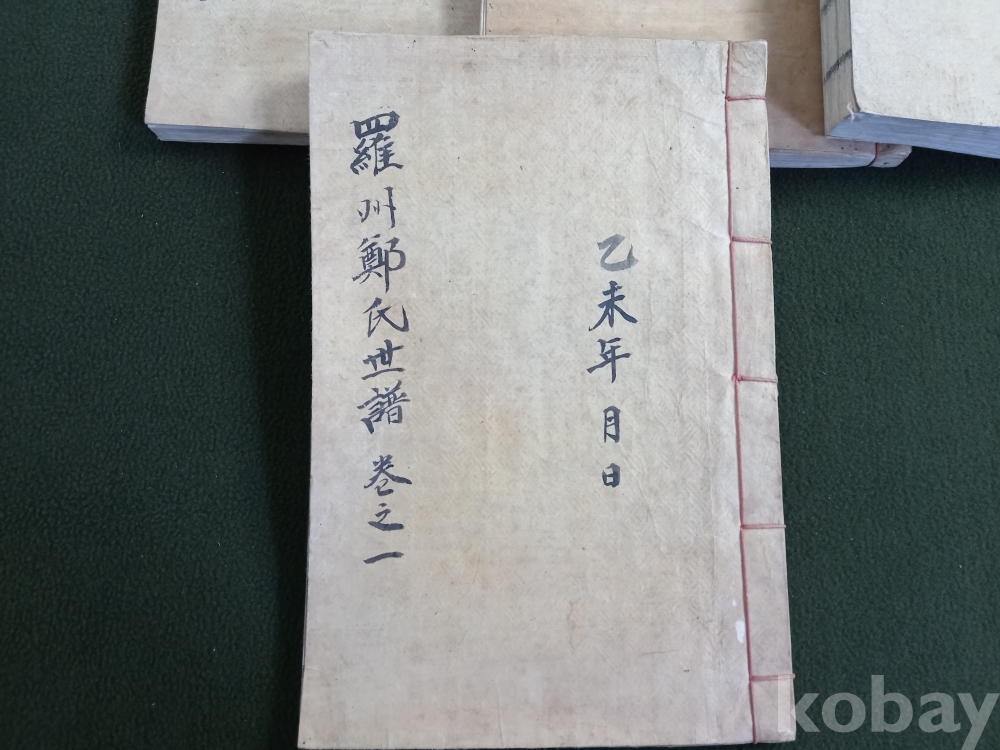 乙未年 月 日
羅州鄭氏世譜 卷之一
kobay